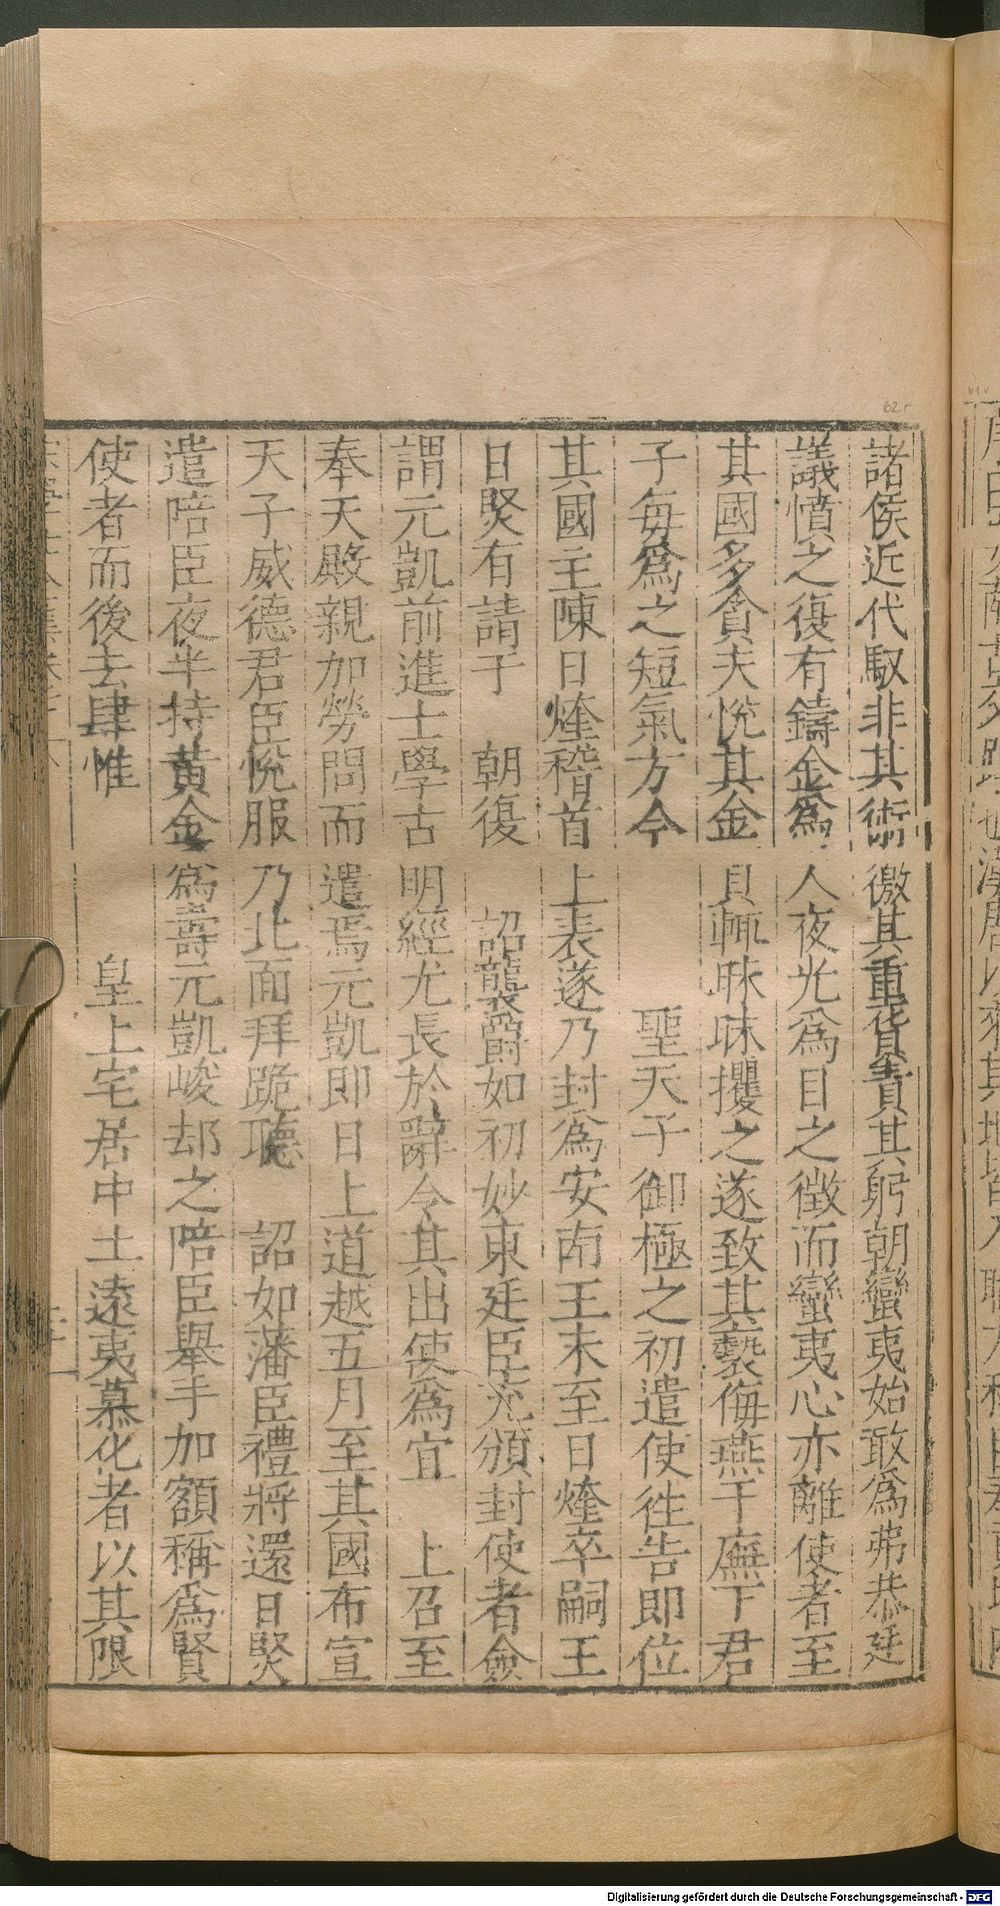 諸侯近代馭非其術徼其重貨責其躬朝蠻夷始敢爲弗恭廷
議憤之復有鑄金爲人夜光爲目之徵而蠻夷心亦離使者至
其國多貪夫悅其金貝輒昧昧攫之遂致其褻侮燕于廡下君
子每爲之短氣方今聖天子御極之初遣使徃告即位
其國主陳日煃稽首上表遂乃封爲安南王未至日煃卒嗣王
日熞有請于朝復詔襲爵如初妙柬廷臣充頒封使者僉
謂元凱前進士學古明經尤長於辭令其出使爲宜上召至
奉天殿親加勞問而遣焉元凱即日上道越五月至其國布宣
天子威德君臣悅服乃北面拜跪聽詔如藩臣禮將還日熞
遣陪臣夜半持黃金爲壽元凱峻却之陪臣舉手加額稱爲賢
使者而後去肆惟皇上宅居中土遠夷慕化者以其限
62r
61v
Digitalisierung gefördert durch die Deutsche Forschungsgemeinschaft - DFG